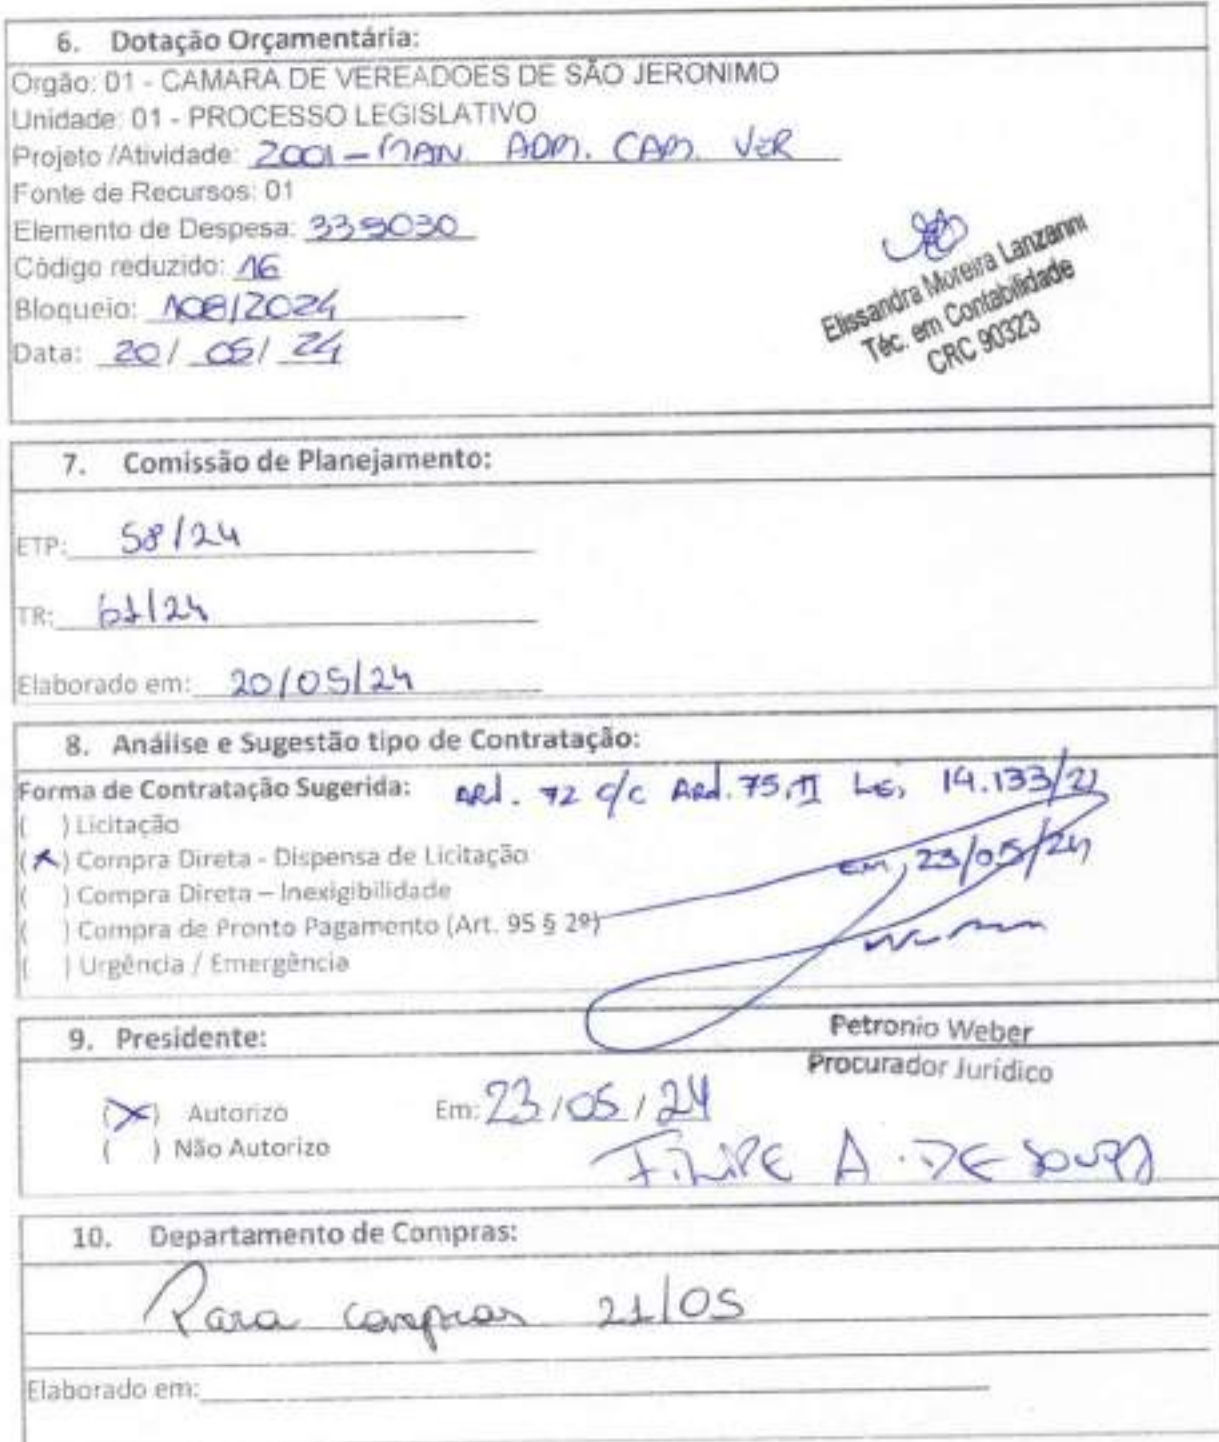 6. Dotação Orçamentária:
Orgão: 01 - CAMARA DE VEREADOES DE SÃO JERONIMO
Unidade: 01 - PROCESSO LEGISLATIVO
Projeto /Atividade: 2001 - MAN. ADM. CAM. VER
Fonte de Recursos: 01
Elemento de Despesa: 339030
Código reduzido: 16
Bloqueio: 108/2024
Data: 20/ 05/ 24
Elissandra Moreira Lanzanni
Téc. em Contabilidade
CRC 90323
7. Comissão de Planejamento:
ETP: 58/24
TR: 61/24
Elaborado em: 20/05/24
8. Análise e Sugestão tipo de Contratação:
Forma de Contratação Sugerida: Art. 72 c/c Art. 75, II Lei 14.133/21
( ) Licitação
(X) Compra Direta - Dispensa de Licitação
em, 23/05/24
( ) Compra Direta – Inexigibilidade
( ) Compra de Pronto Pagamento (Art. 95 § 2º)
( ) Urgência / Emergência
Petronio Weber
Procurador Jurídico
9. Presidente:
(X) Autorizo Em: 23/05/24
( ) Não Autorizo
FILIPE A. DE SOUZA
10. Departamento de Compras:
Para compras 21/05
Elaborado em: